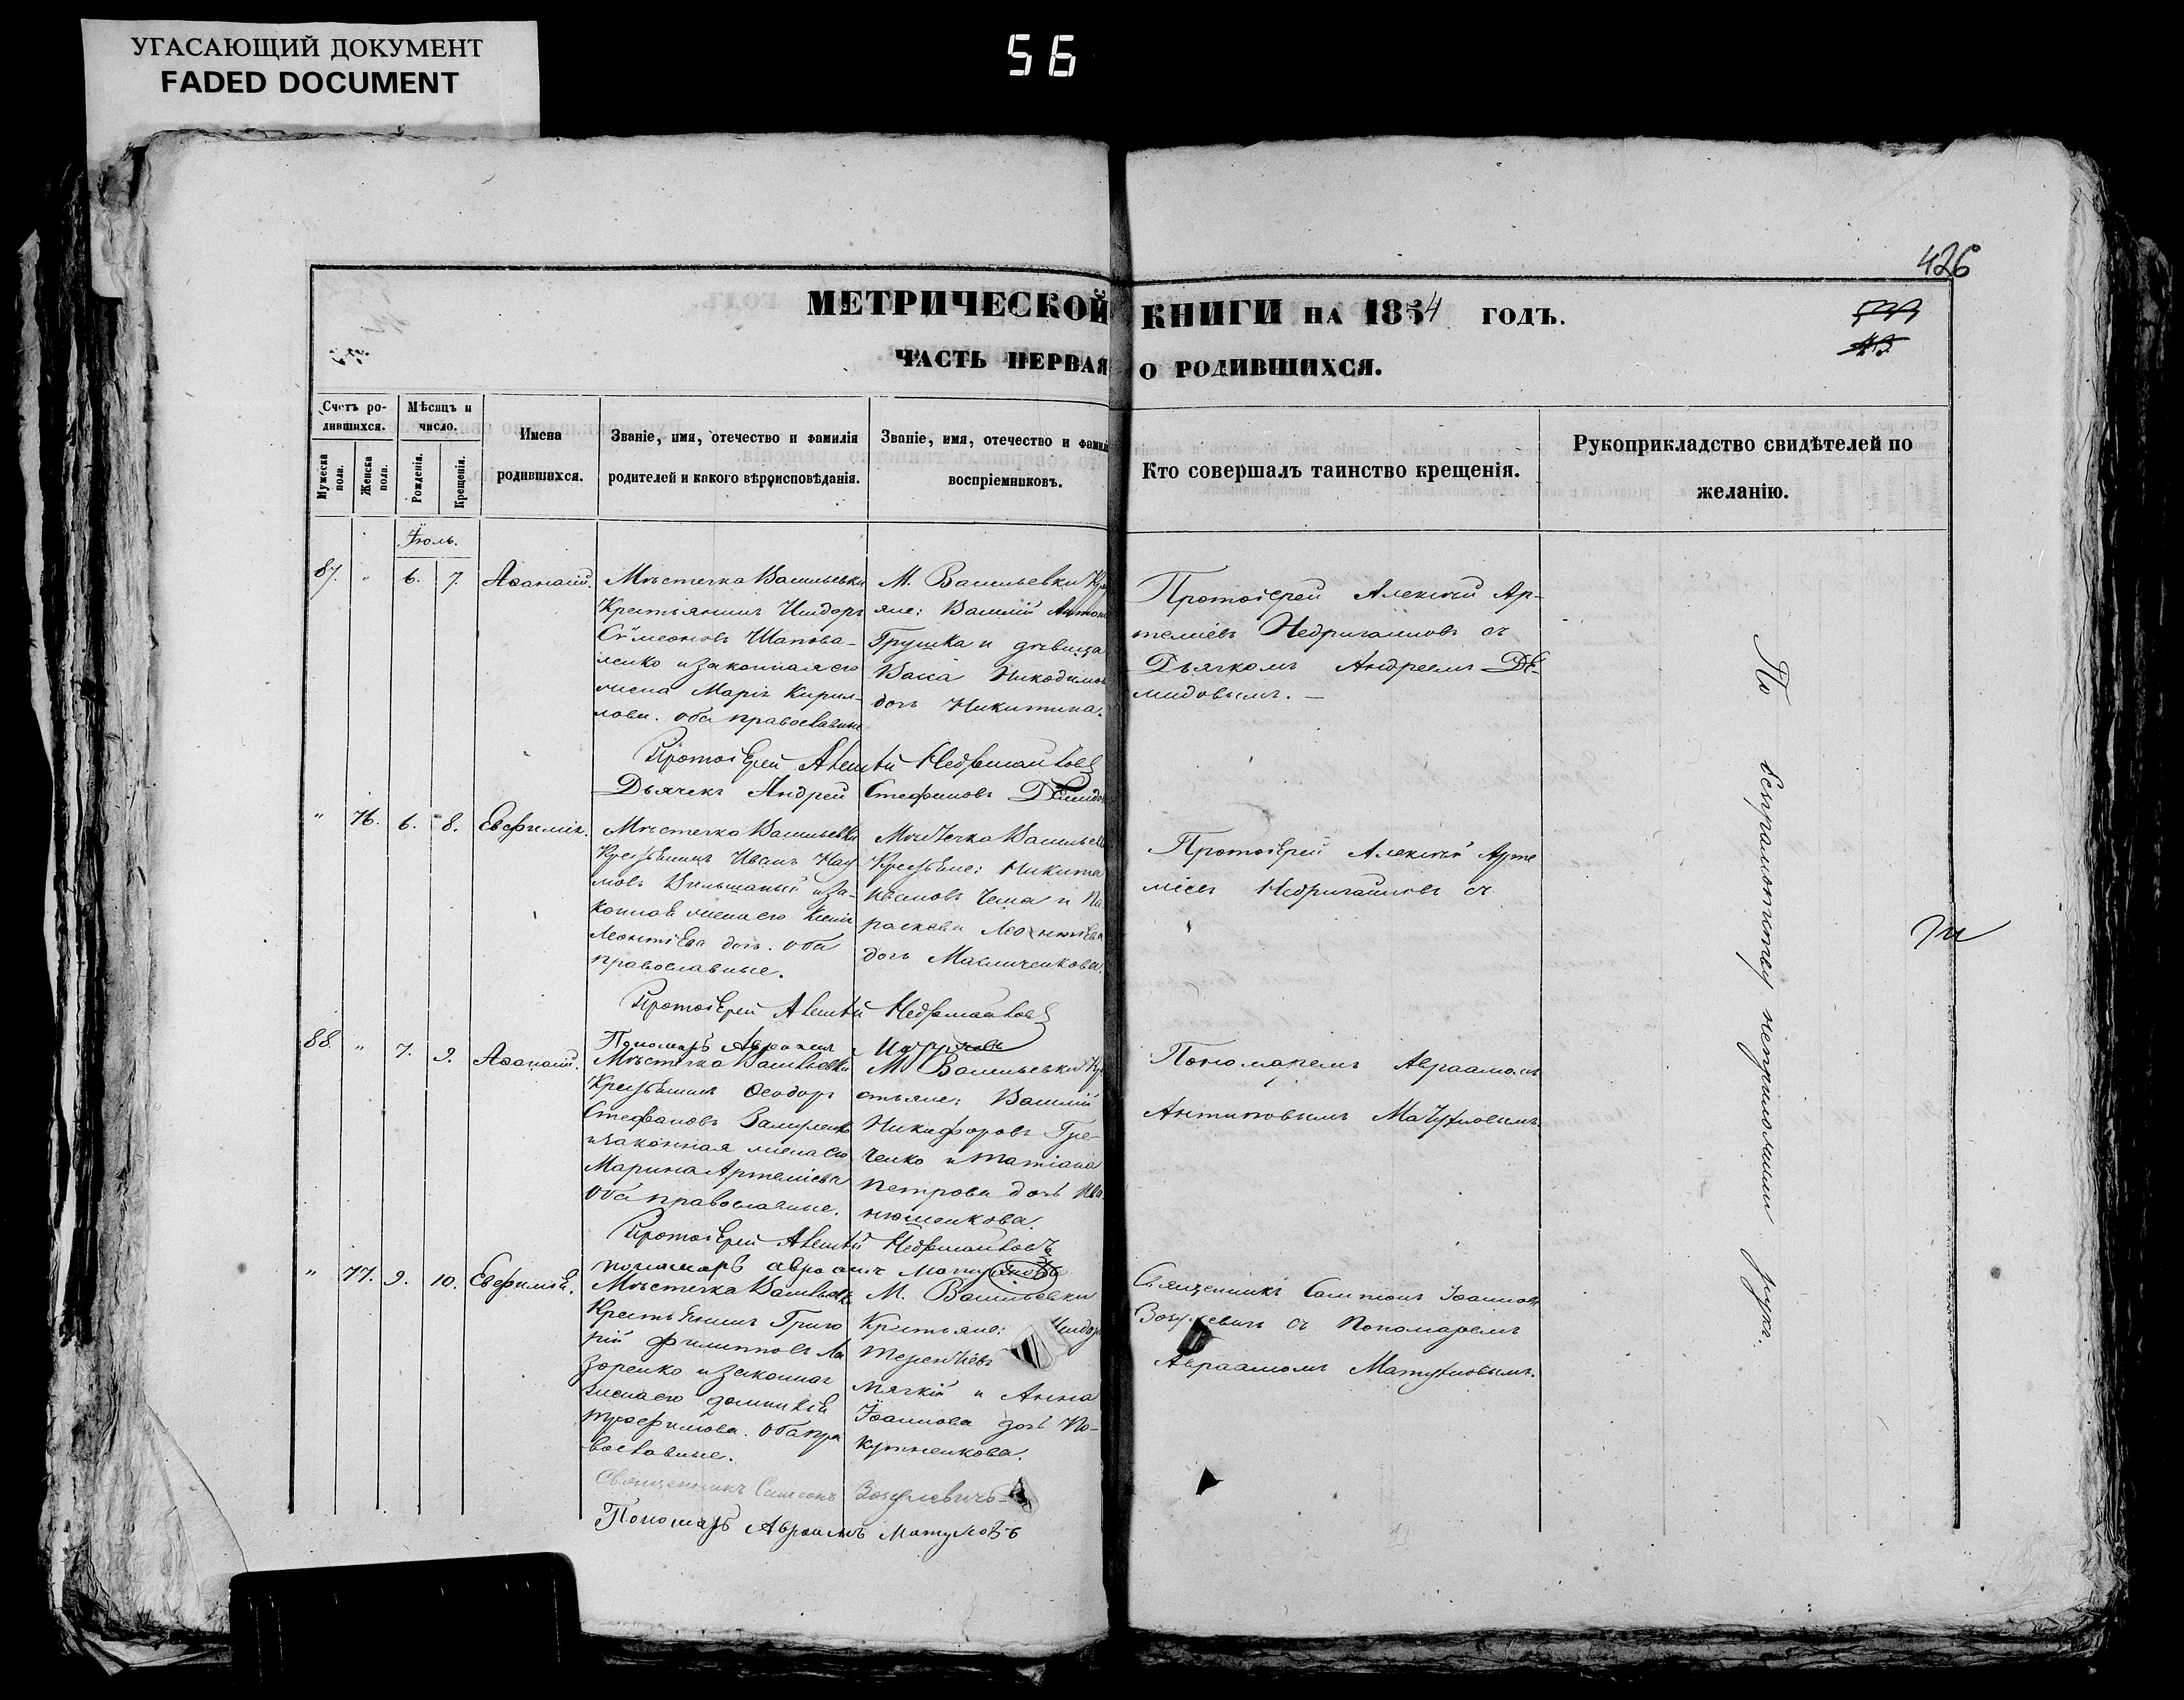 УГАСАЮЩИЙ ДОКУМЕНТ
FADED DOCUMENT
56
426
МЕТРИЧЕСКОЙ КНИГИ НА 1854 ГОДЪ.
ЧАСТЬ ПЕРВАЯ О РОДИВШИХСЯ.
Счетъ ро-
дившихся.
Мужеска пола.
Женска пола.
Мѣсяцъ и
число.
Рожденія.
Крещенія.
Имена
родившихся.
Званіе, имя, отечество и фамилія
родителей и какого вѣроисповѣданія.
Званіе, имя, отечество и фамил
воспріемниковъ.
Кто совершалъ таинство крещенія.
Рукоприкладство свидѣтелей по
желанію.
Іюль.
87. " 6. 7. Аѳанасій.
Мѣстечка Васильевки
Крестьянинъ Исидоръ
Сѵмеоновъ Шапова-
ленко и законная его
жена Марія Кирил-
лова. оба православные
М. Васильевки Кре
яне: Василій Антоно
Грушка и дѣвица
Васса Никодимов
дочь Никитина.
Протоіерей Алексій Ар-
теміевъ Недригайловъ съ
Дьячкомъ Андреемъ Де-
мидовымъ.
Протоіерей Алексій Недригайловъ
Дьячекъ Андрей Стефановъ Демидо
" 76. 6. 8. Евѳимія.
Мѣстечка Васильевки
Крестьянинъ Иванъ Нау-
мовъ Вильшаный и за-
конная жена его Ксенія
Леонтіева дочь. оба
православные.
Мѣстечка Василье
Крестьяне: Никита
Ивановъ Чеша и Па-
раскева Леонтіева
дочь Масличенкова.
Протоіерей Алексій Арте
міевъ Недригайловъ съ
Протоіерей Алексій Недригайловъ
Пономарь Авраамъ
88. " 7. 9. Аѳанасій.
Мѣстечка Васильевки
Крестьянинъ Ѳеодоръ
Стефановъ
и законная жена его
Марина Артеміева
оба православные.
М. Васильевки Кр
стьяне: Василій
Никифоровъ Гре-
ченко и Татіана
Петрова дочь Ива-
нюшенкова.
Пономаремъ Авраамомъ
Антиповымъ Матушовымъ
Протоіерей Алексій Недригайловъ
пономарь Авраамъ Матушовъ
" 77. 9. 10. Евѳимія.
Мѣстечка Васильевки
Крестьянинъ Григо
рій Филипповъ Ла
зоренко и законная
жена его Домникія
Трофимова. Оба пра
вославные.
М. Васильевки
Крестьяне: Исидор
Терентіевъ
Мягкій и Анна
Іоаннова дочь По-
кутненкова.
Священникъ Сампсонъ Іоанновъ
съ Пономаремъ
Авраамомъ Матушовымъ.
Священникъ Сампсонъ
Пономарь Авраамъ Матушовъ
По безграмотству неприложили рукъ.